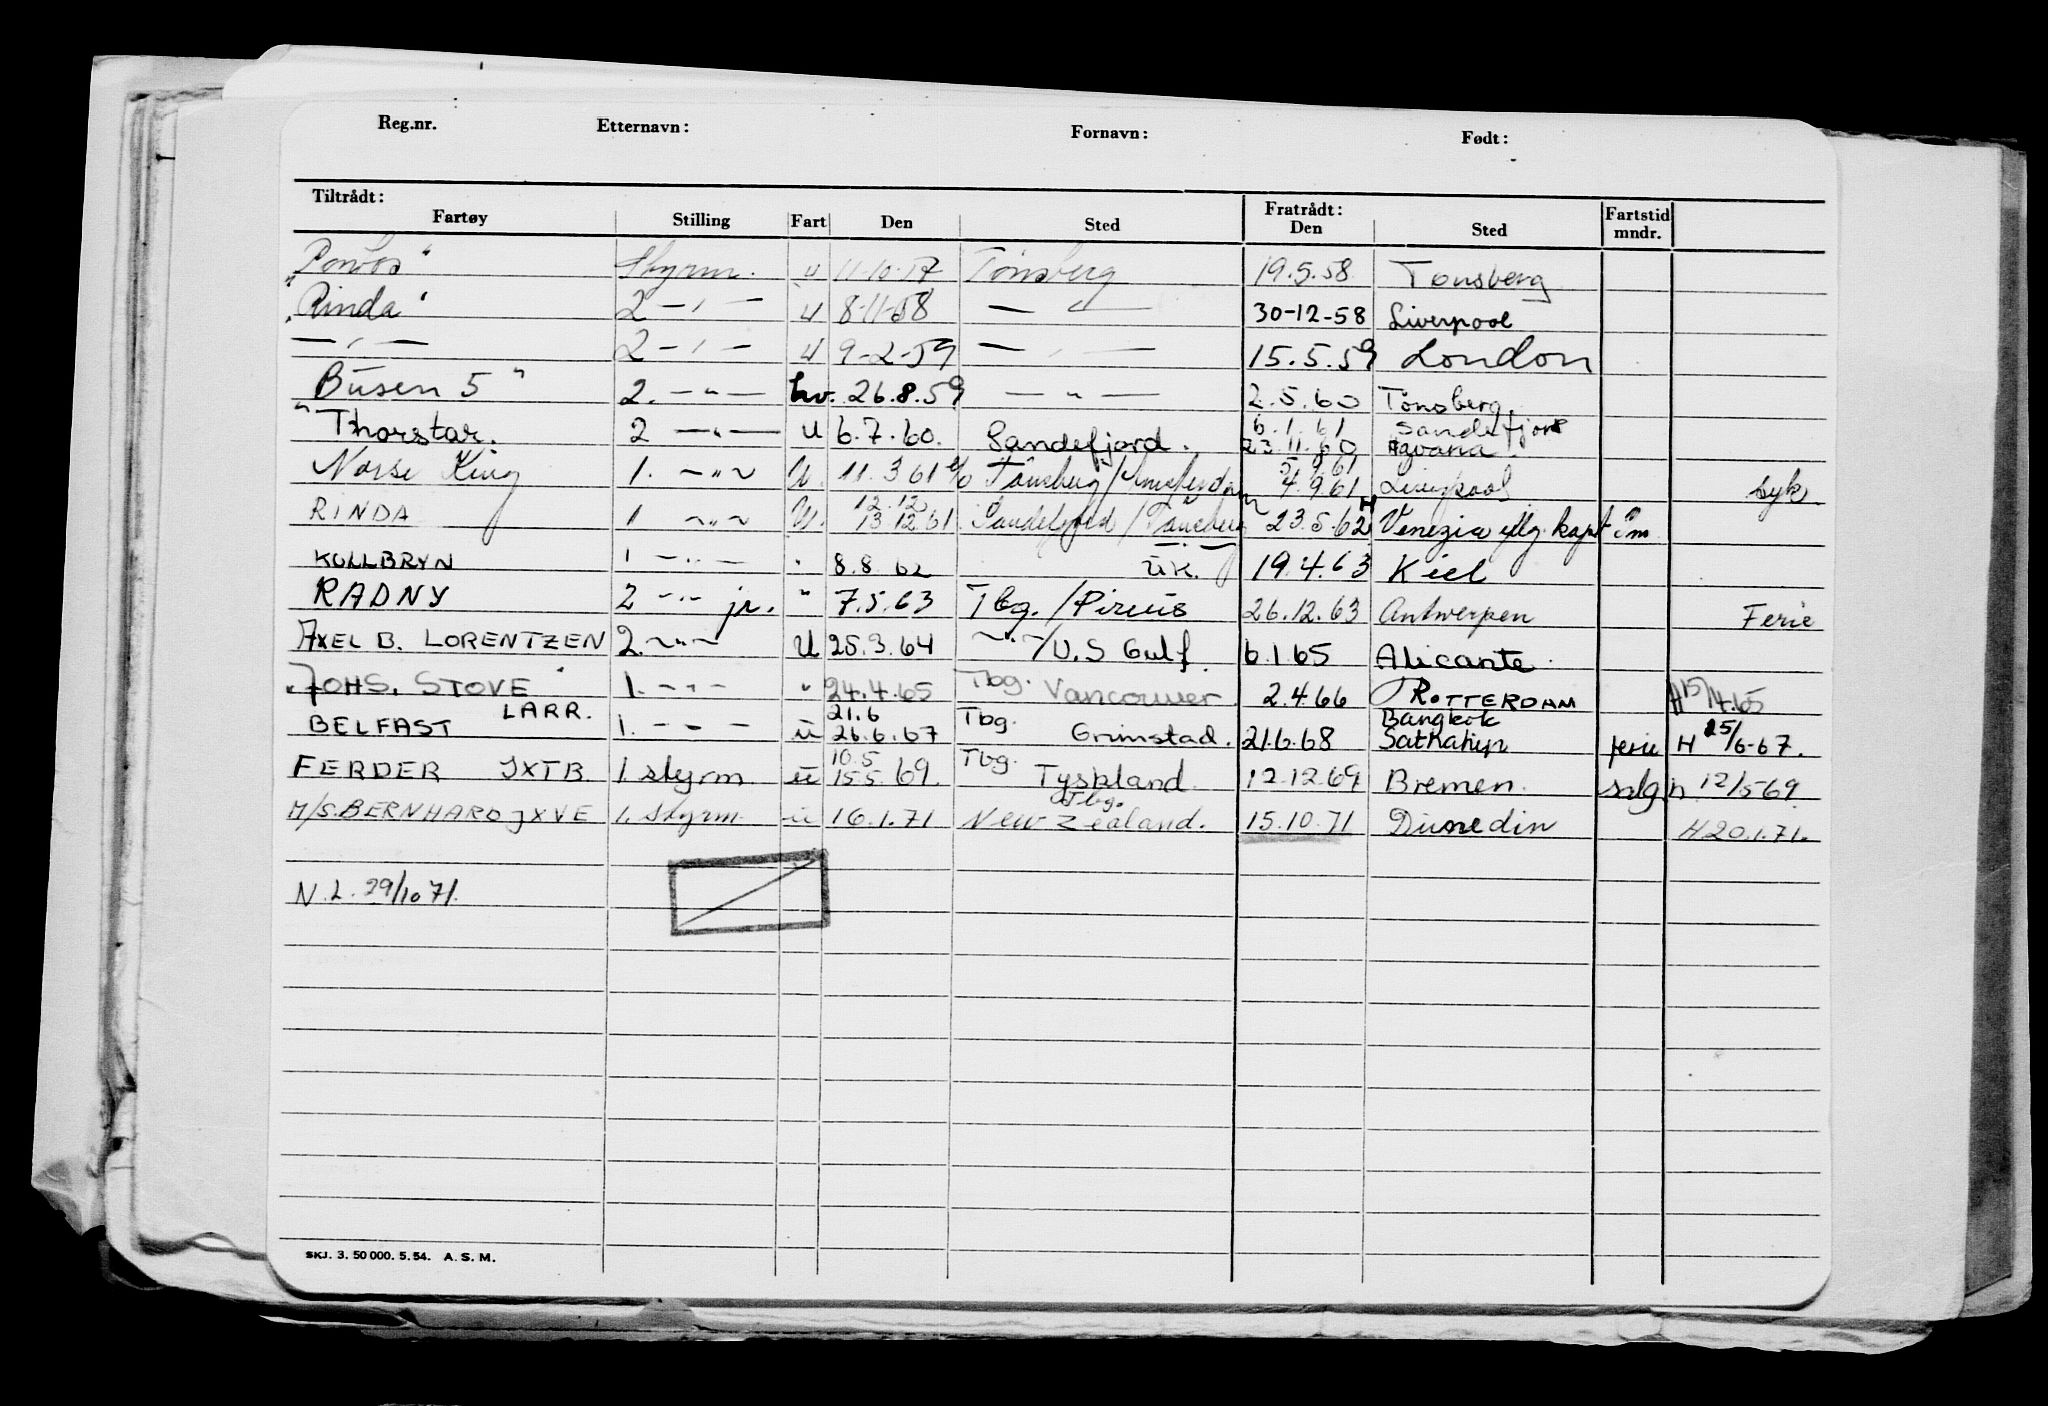 Reg.nr. Etternavn: Fornavn: Født:
Tiltrådt: Fratrådt: Fartstid
Fartøy Stilling Fart Den Sted Den Sted mndr.
Styrm. u 11-10-57 Tönsberg 19.5.58 Tönsberg
"Rinda" 2 — " — u 8-11-58 — " — 30-12-58 Liverpool
— " — 2 — " — u 9-2-59 — " — 15.5.59 London
Busen 5" 2. — " — hv. 26.8.59 — " — 2.5.60 Tönsberg
6.1.61 Sandefjord
"Thorstar. 2 — " — u 6.7.60. Sandefjord. 23.11.60 Havana
Norse King 1. — " — U. 11.3.61 Tönsberg / 4.9.61 Liverpool syk
12.12
RINDA 1 — " — U. 13.12.61 Sandefjord / Tönsberg 23.5.62 Venezia
KOLLBRYN 1 — " — " 8.8.62 U.K. 19.4.63 Kiel
RADNY 2 — " — jr. " 7.5.63 Tbg. / Pireus 26.12.63 Antwerpen Ferie
AXEL B. LORENTZEN 2. — " — U 25.3.64 — " — / U.S Gulf. 6.1.65 Alicante.
"JOHS. STOVE" 1. — " — " 24.4.65 Tbg. Vancouver. 2.4.66 ROTTERDAM H 15/4.65
LARR. 21.6 Tbg. Bangkok
BELFAST 1. — " — u 26.6.67 Grimstad. 21.6.68 ferie H 25/6-67.
10.5 Tbg.
FERDER JXTB 1 styrm u 15.5.69. Tyskland. 12.12.69 Bremen. salg h 12/5 69.
Tbg.
M/S. BERNHARD JXVE 1. styrm u 16.1.71 New Zealand. 15.10.71 Dunedin H 20.1.71.
N.L. 29/10 71.
SKJ. 3. 50 000. 5. 54. A. S. M.